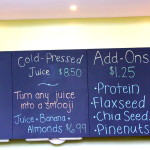 Cold-Pressed
Juice $8.50
Turn any juice
into a smooji
Juice + Banana +
Almonds $6.99
Add-Ons
$1.25
• Protein
Flaxseed
• Chia Seed
• Pinenuts